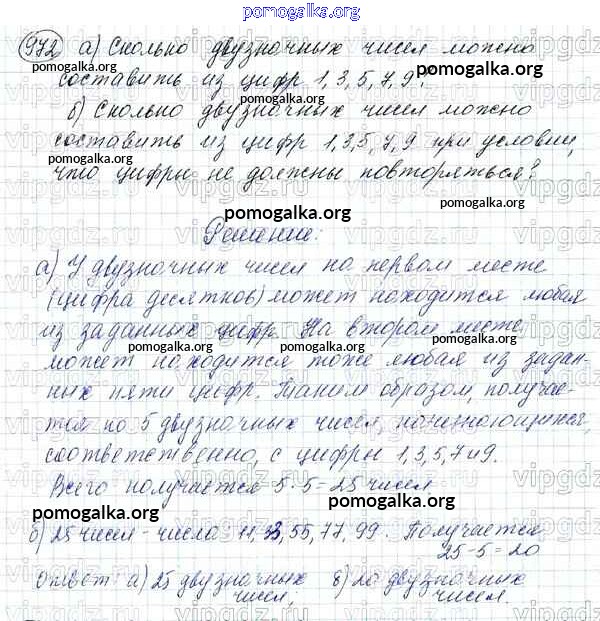 pomogalka.org
972 а) Сколько двузначных чисел можно
составить из цифр 1, 3, 5, 7, 9?
б) Сколько двузначных чисел можно
составить из цифр 1, 3, 5, 7, 9 при условии,
что цифры не должны повторяться?
Решение:
а) У двузначных чисел на первом месте
(цифра десятков) может находится любая
из заданных цифр. На втором месте
может находится тоже любая из задан-
ных пяти цифр. Таким образом, получае-
тся по 5 двузначных чисел, начинающихся,
соответственно, с цифры 1, 3, 5, 7 и 9.
Всего получается 5 · 5 = 25 чисел
б) 25 чисел - числа 11, 33, 55, 77, 99. Получается
25 - 5 = 20
Ответ а) 25 двузначных чисел; б) 20 двузначных чисел.